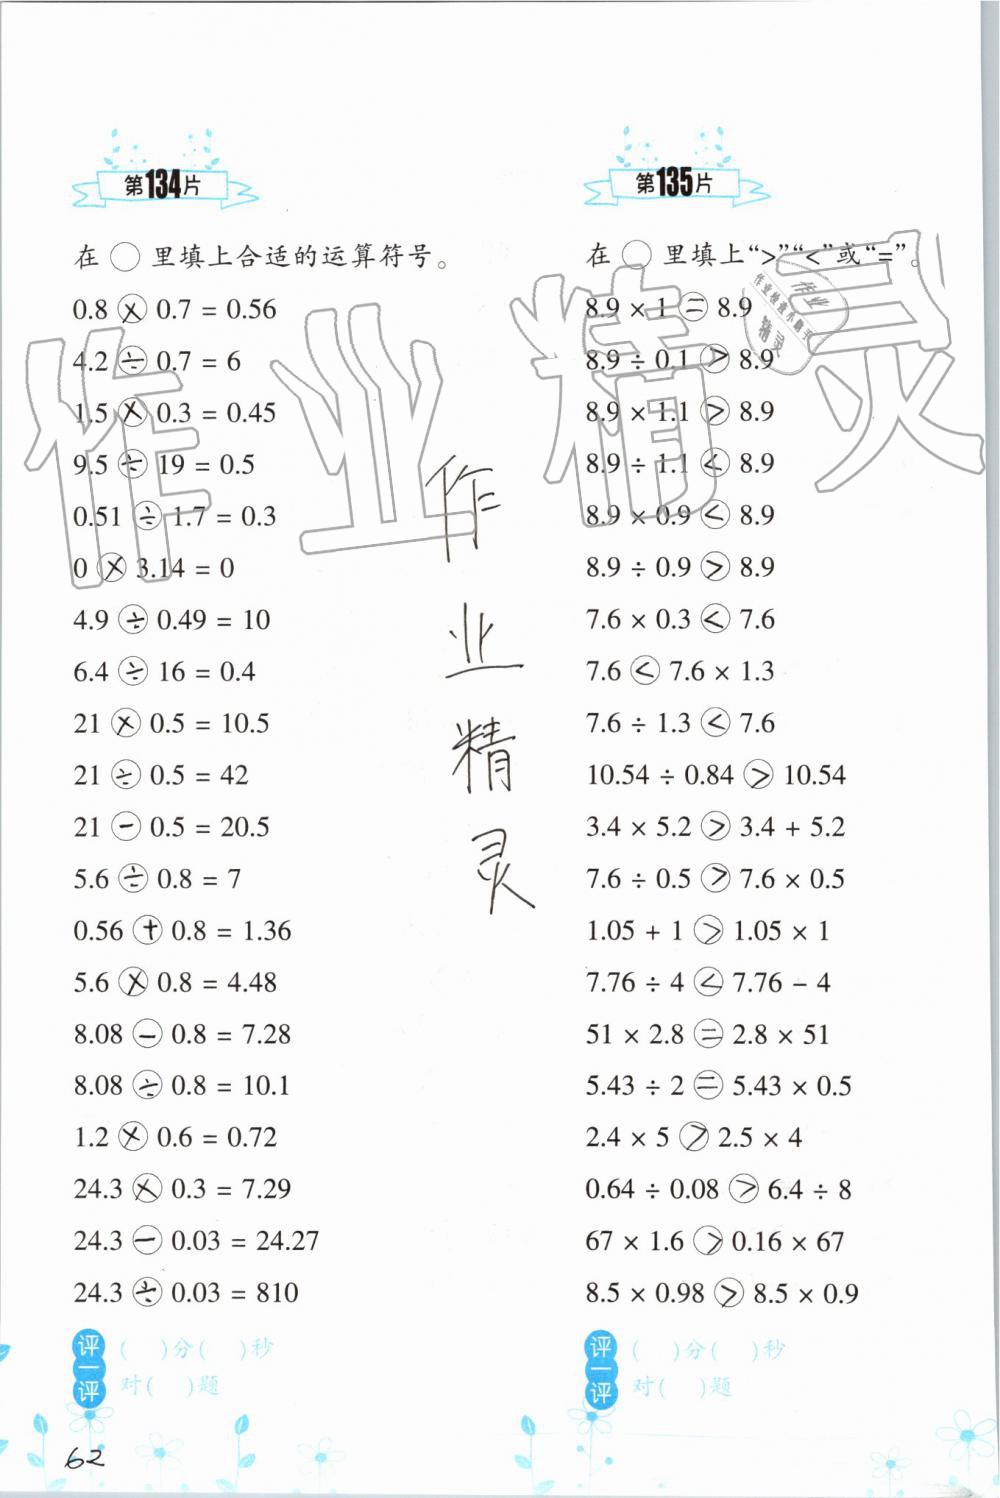 第134片
在 ○ 里填上合适的运算符号。
0.8 × 0.7 = 0.56
4.2 ÷ 0.7 = 6
1.5 × 0.3 = 0.45
9.5 ÷ 19 = 0.5
0.51 ÷ 1.7 = 0.3
0 × 3.14 = 0
4.9 ÷ 0.49 = 10
6.4 ÷ 16 = 0.4
21 × 0.5 = 10.5
21 ÷ 0.5 = 42
21 − 0.5 = 20.5
5.6 ÷ 0.8 = 7
0.56 + 0.8 = 1.36
5.6 × 0.8 = 4.48
8.08 − 0.8 = 7.28
8.08 ÷ 0.8 = 10.1
1.2 × 0.6 = 0.72
24.3 × 0.3 = 7.29
24.3 − 0.03 = 24.27
24.3 ÷ 0.03 = 810
评一评
(  )分(  )秒
对(  )题
62
作业精灵
作业精灵
第135片
在 ○ 里填上“>”“<”或“=”。
8.9 × 1 = 8.9
8.9 ÷ 0.1 > 8.9
8.9 × 1.1 > 8.9
8.9 ÷ 1.1 < 8.9
8.9 × 0.9 < 8.9
8.9 ÷ 0.9 > 8.9
7.6 × 0.3 < 7.6
7.6 < 7.6 × 1.3
7.6 ÷ 1.3 < 7.6
10.54 ÷ 0.84 > 10.54
3.4 × 5.2 > 3.4 + 5.2
7.6 ÷ 0.5 > 7.6 × 0.5
1.05 + 1 > 1.05 × 1
7.76 ÷ 4 < 7.76 − 4
51 × 2.8 = 2.8 × 51
5.43 ÷ 2 = 5.43 × 0.5
2.4 × 5 > 2.5 × 4
0.64 ÷ 0.08 > 6.4 ÷ 8
67 × 1.6 > 0.16 × 67
8.5 × 0.98 > 8.5 × 0.9
评一评
(  )分(  )秒
对(  )题
作业
作业检查小精灵
精灵